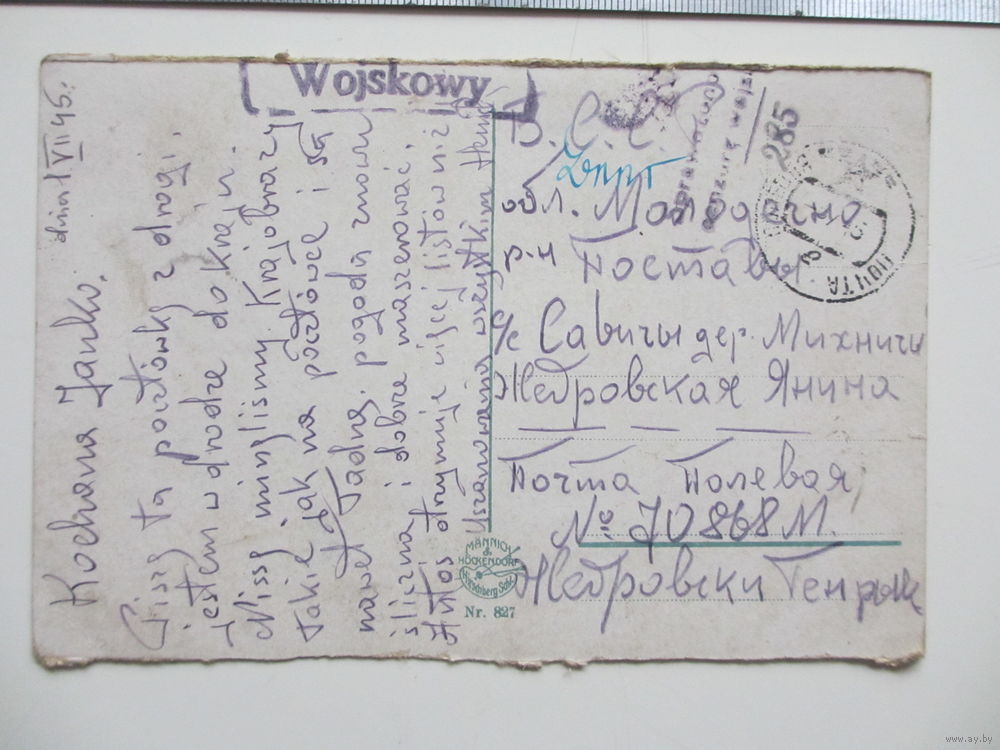 Wojskowy
dnia 1 VII 45.
Kochana Janko.
Piszę tą pocztówkę z drogi.
jestem w drodze do kraju.
Nissę minęliśmy Krajobrazy
takie jak na pocztówce i są
nawet ładne, pogoda znowu
śliczna i dobrze maszerować.
Antoś otrzymuje więcej listów niż
Uszanowania wszystkim Heniek
В. С. С.
обл. Молодечно
р-н Поставы
с/с Савичы дер. Михничи
Жебровская Янина
Почта Полевая
№ 70868 М.
Жебровски Генрык
285
ПОЧТА
MANNICH
&
HÖCKENDORF
Hirschberg Schl.
Nr. 827
www.ay.by